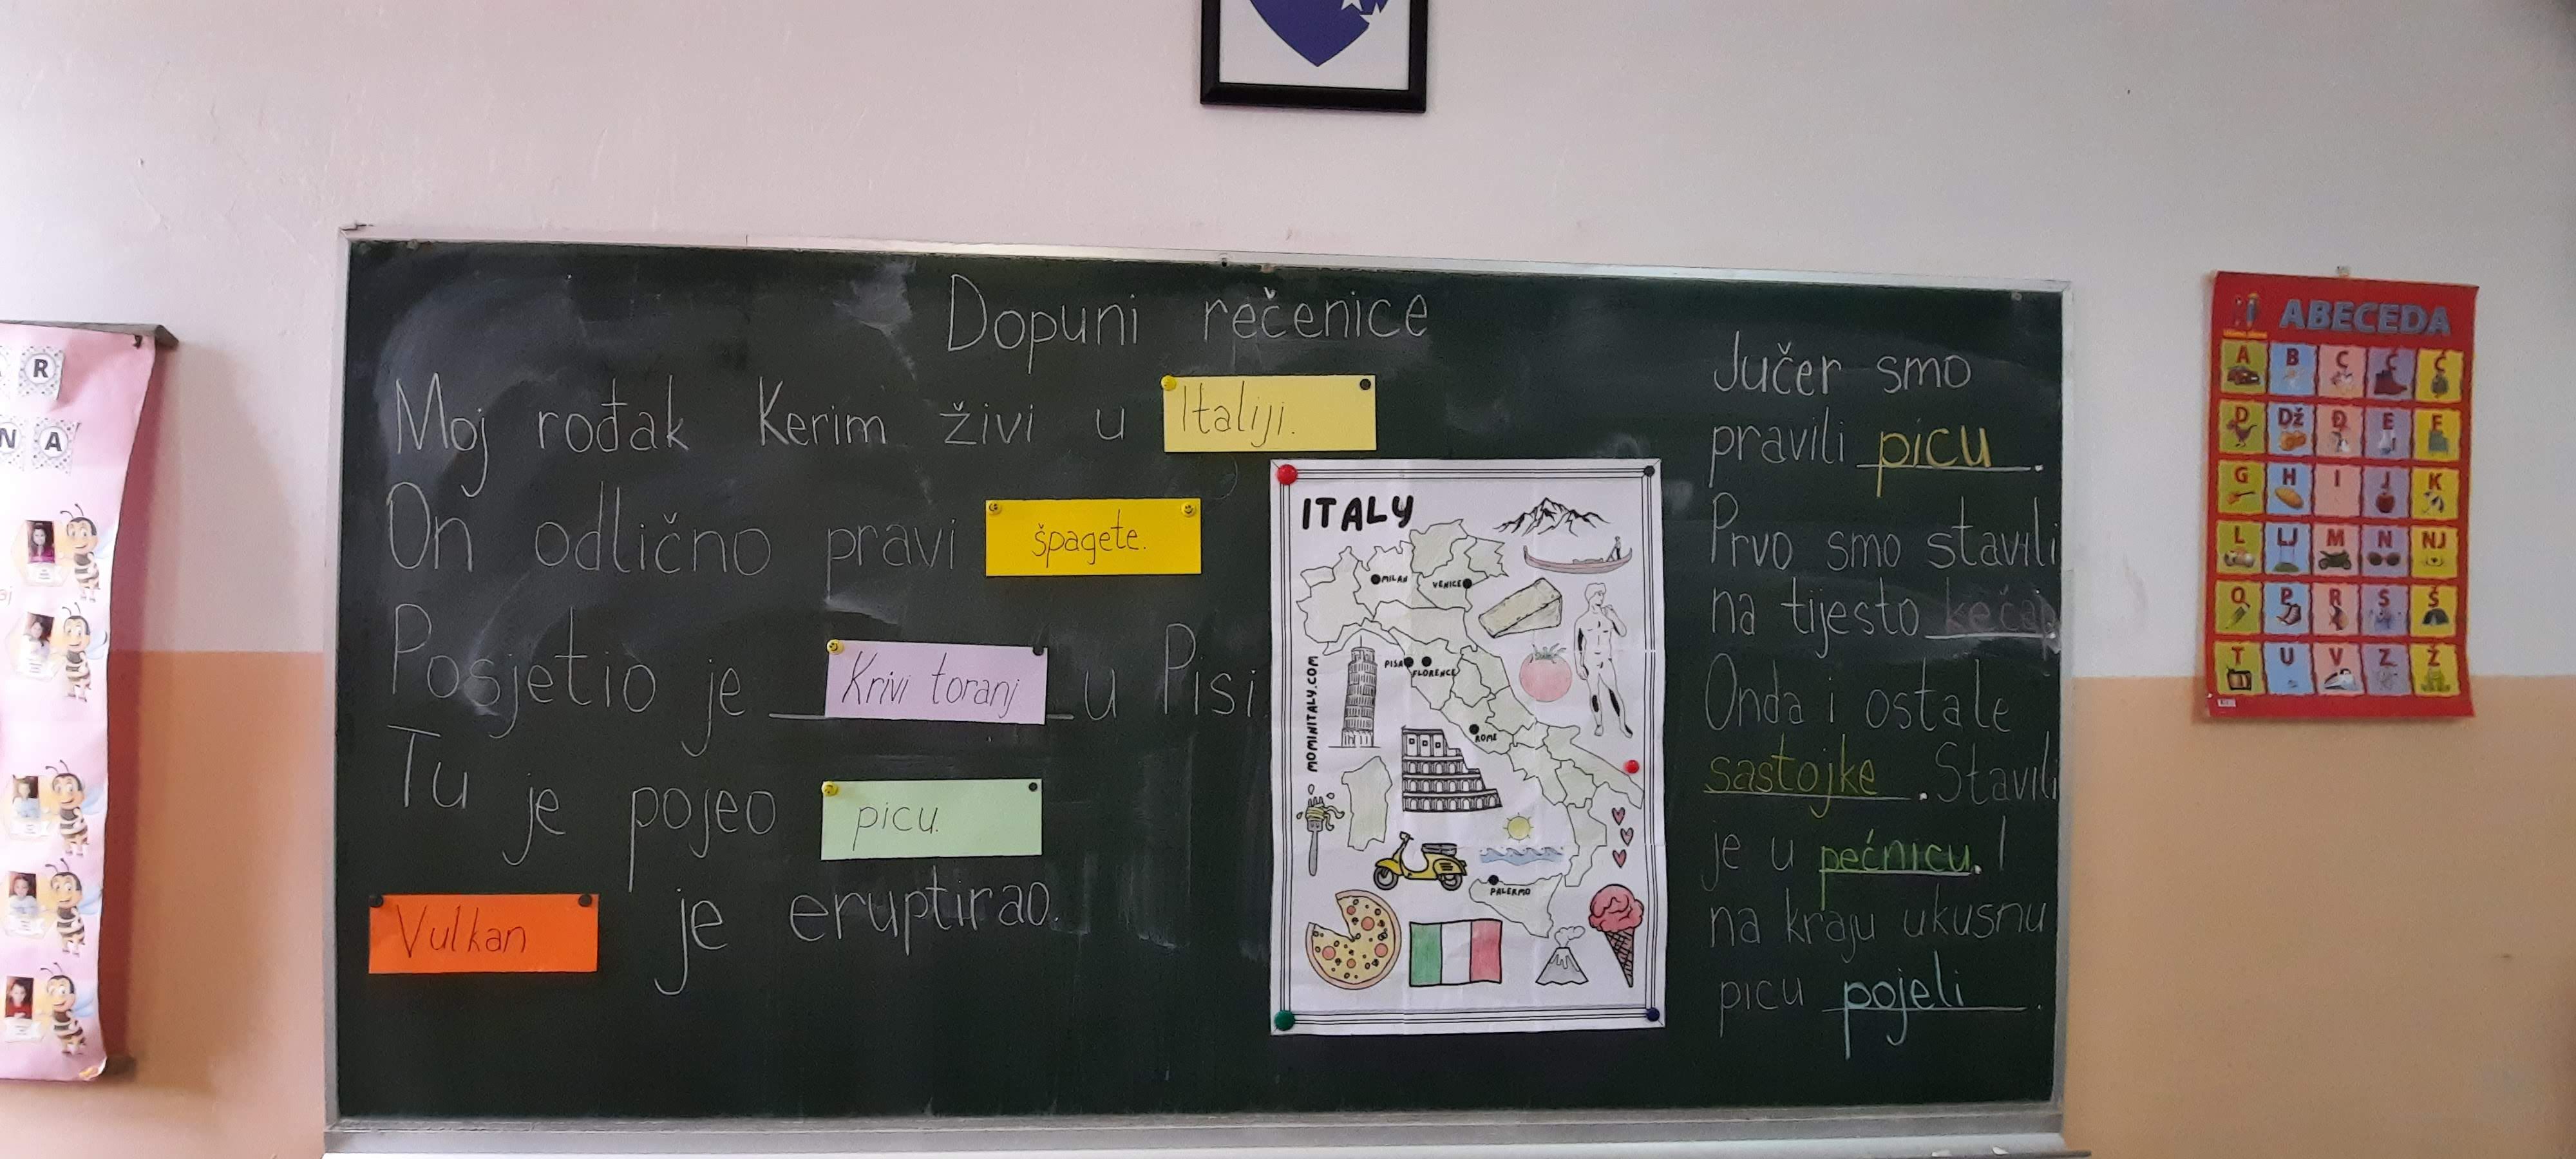 Dopuni rečenice
Moj rođak Kerim živi u Italiji.
On odlično pravi špagete.
Posjetio je Krivi toranj u Pisi
Tu je pojeo picu.
Vulkan je eruptirao.
ITALY
MILAN
VENICE
PISA
FLORENCE
ROME
PALERMO
MOMINITALY.COM
Jučer smo
pravili picu.
Prvo smo stavili
na tijesto kečap
Onda i ostale
sastojke. Stavili
je u pećnicu. I
na kraju ukusnu
picu pojeli.
R
N A
ABECEDA
A B C Č Ć
D Dž Đ E F
G H I J K
L LJ M N NJ
O P R S Š
T U V Z Ž